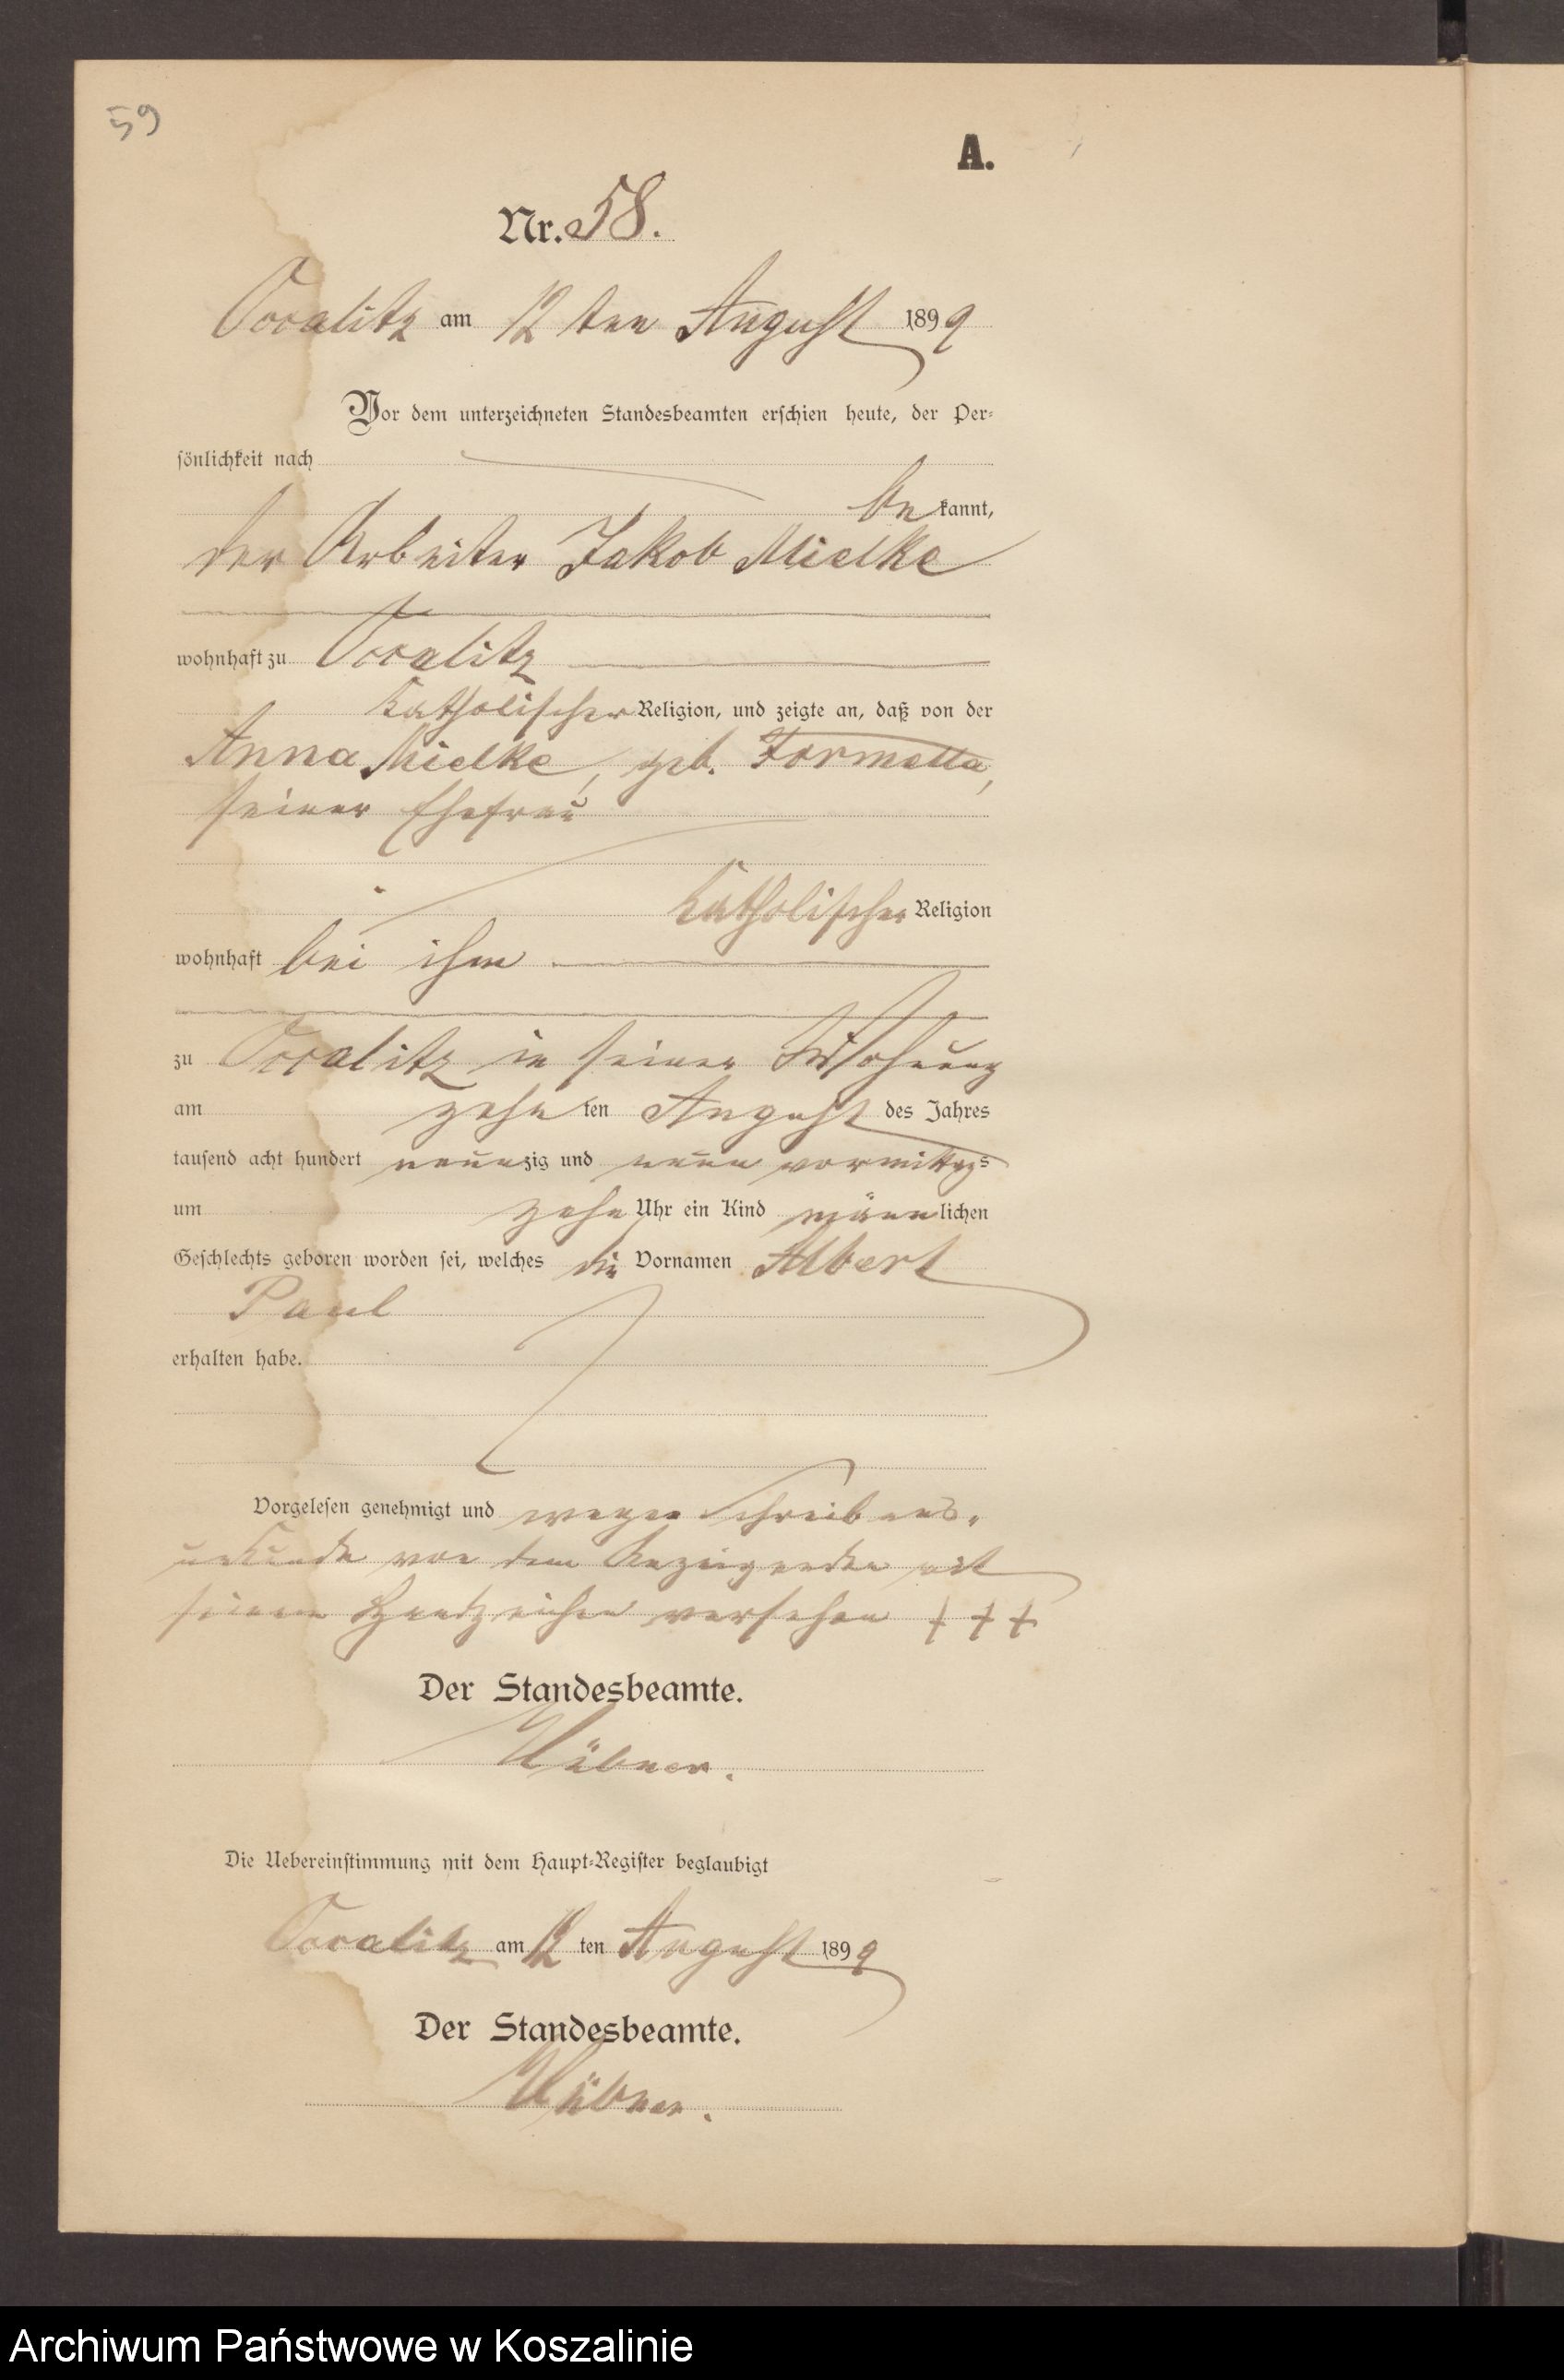 59
A.
Nr. 58.
am 12 ten August 1899
Vor dem unterzeichneten Standesbeamten erschien heute, der Per-
sönlichkeit nach
bekannt,
der Arbeiter Jakob Mielke
wohnhaft zu
katholischer Religion, und zeigte an, daß von der
Anna Mielke, geb. Formella,
seiner Ehefrau
katholischer Religion
wohnhaft bei ihm
zu in seiner Wohnung
am zehn ten August des Jahres
tausend acht hundert neunzig und neun vormittags
um zehn Uhr ein Kind männlichen
Geschlechts geboren worden sei, welches die Vornamen Albert
Paul
erhalten habe.
Vorgelesen genehmigt und wegen Schreibens-
unkunde von dem Anzeigenden mit
seinem Handzeichen versehen + + +
Der Standesbeamte.
Hübner.
Die Uebereinstimmung mit dem Haupt-Register beglaubigt
am 12 ten August 1899
Der Standesbeamte.
Hübner.
Archiwum Państwowe w Koszalinie